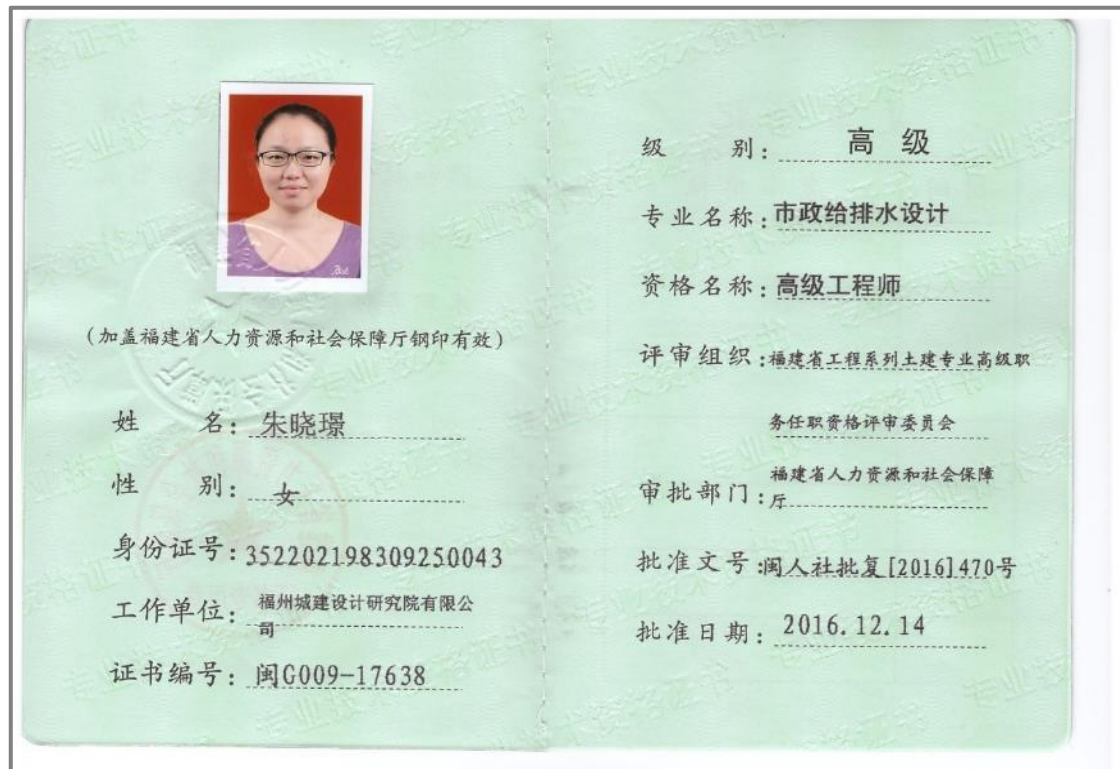 (加盖福建省人力资源和社会保障厅钢印有效)
姓 名: 朱晓璟
性 别: 女
身份证号: 352202198309250043
工作单位: 福州城建设计研究院有限公
司
证书编号: 闽G009-17638
级 别: 高 级
专业名称: 市政给排水设计
资格名称: 高级工程师
评审组织: 福建省工程系列土建专业高级职
务任职资格评审委员会
审批部门: 福建省人力资源和社会保障
厅
批准文号: 闽人社批复[2016]470号
批准日期: 2016.12.14
专业技术资格证书